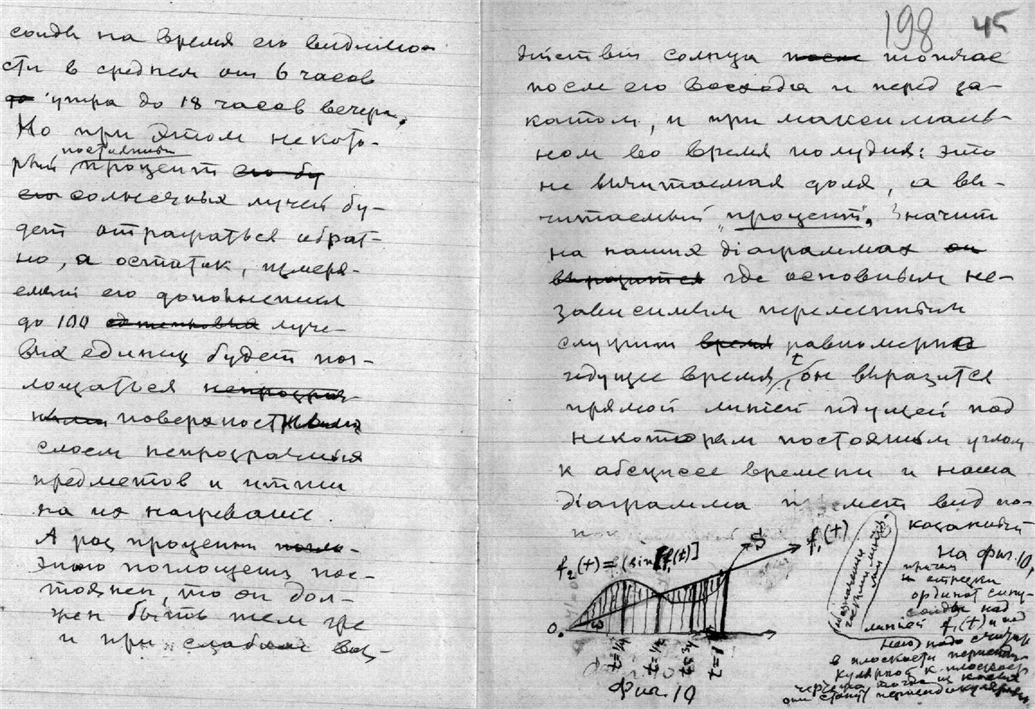 соиды на время его видимо-
сти в среднем от 6 часов
утра до 18 часов вечера.
Но при этом некото-
рый постоянный процент его бу
солнечных лучей бу-
дет отражаться обрат-
но, а остаток, измеря-
емый его дополнением
до 100 луче-
вых единиц будет пог-
лощаться непрозрач
поверхностным
слоем непрозрачных
предметов и итти
на их нагревание.
А раз процент погло-
этого поглощения пос-
тоянен, то он дол-
жен быть тем же
и при слабом воз-
198 45
действии солнца после тотчас
после его восхода и перед за-
катом, и при максималь-
ном во время полудня: это
не вычитаемая доля, а вы-
читаемый „процент“. Значит
на наших діаграммах он
выразится где основным не-
зависимым переменным
служит время равномерно
идущее время t, он выразится
прямой линией идущей под
некоторым постоянным углом
к абсциссе времени и наша
діаграмма примет вид по-
казанный
на фиг. 10,
причем
отрезки
ординат сину-
соиды над
линией f₁(t) и под
нею надо считать
в плоскости перпенди-
кулярной к плоскости
чертежа
они станут перпендикулярны
f₂(t) = (sin f₁(t)]
S
f₁(t)
0.
t=¼
t=½
t=¾
t=1
Фиг. 10